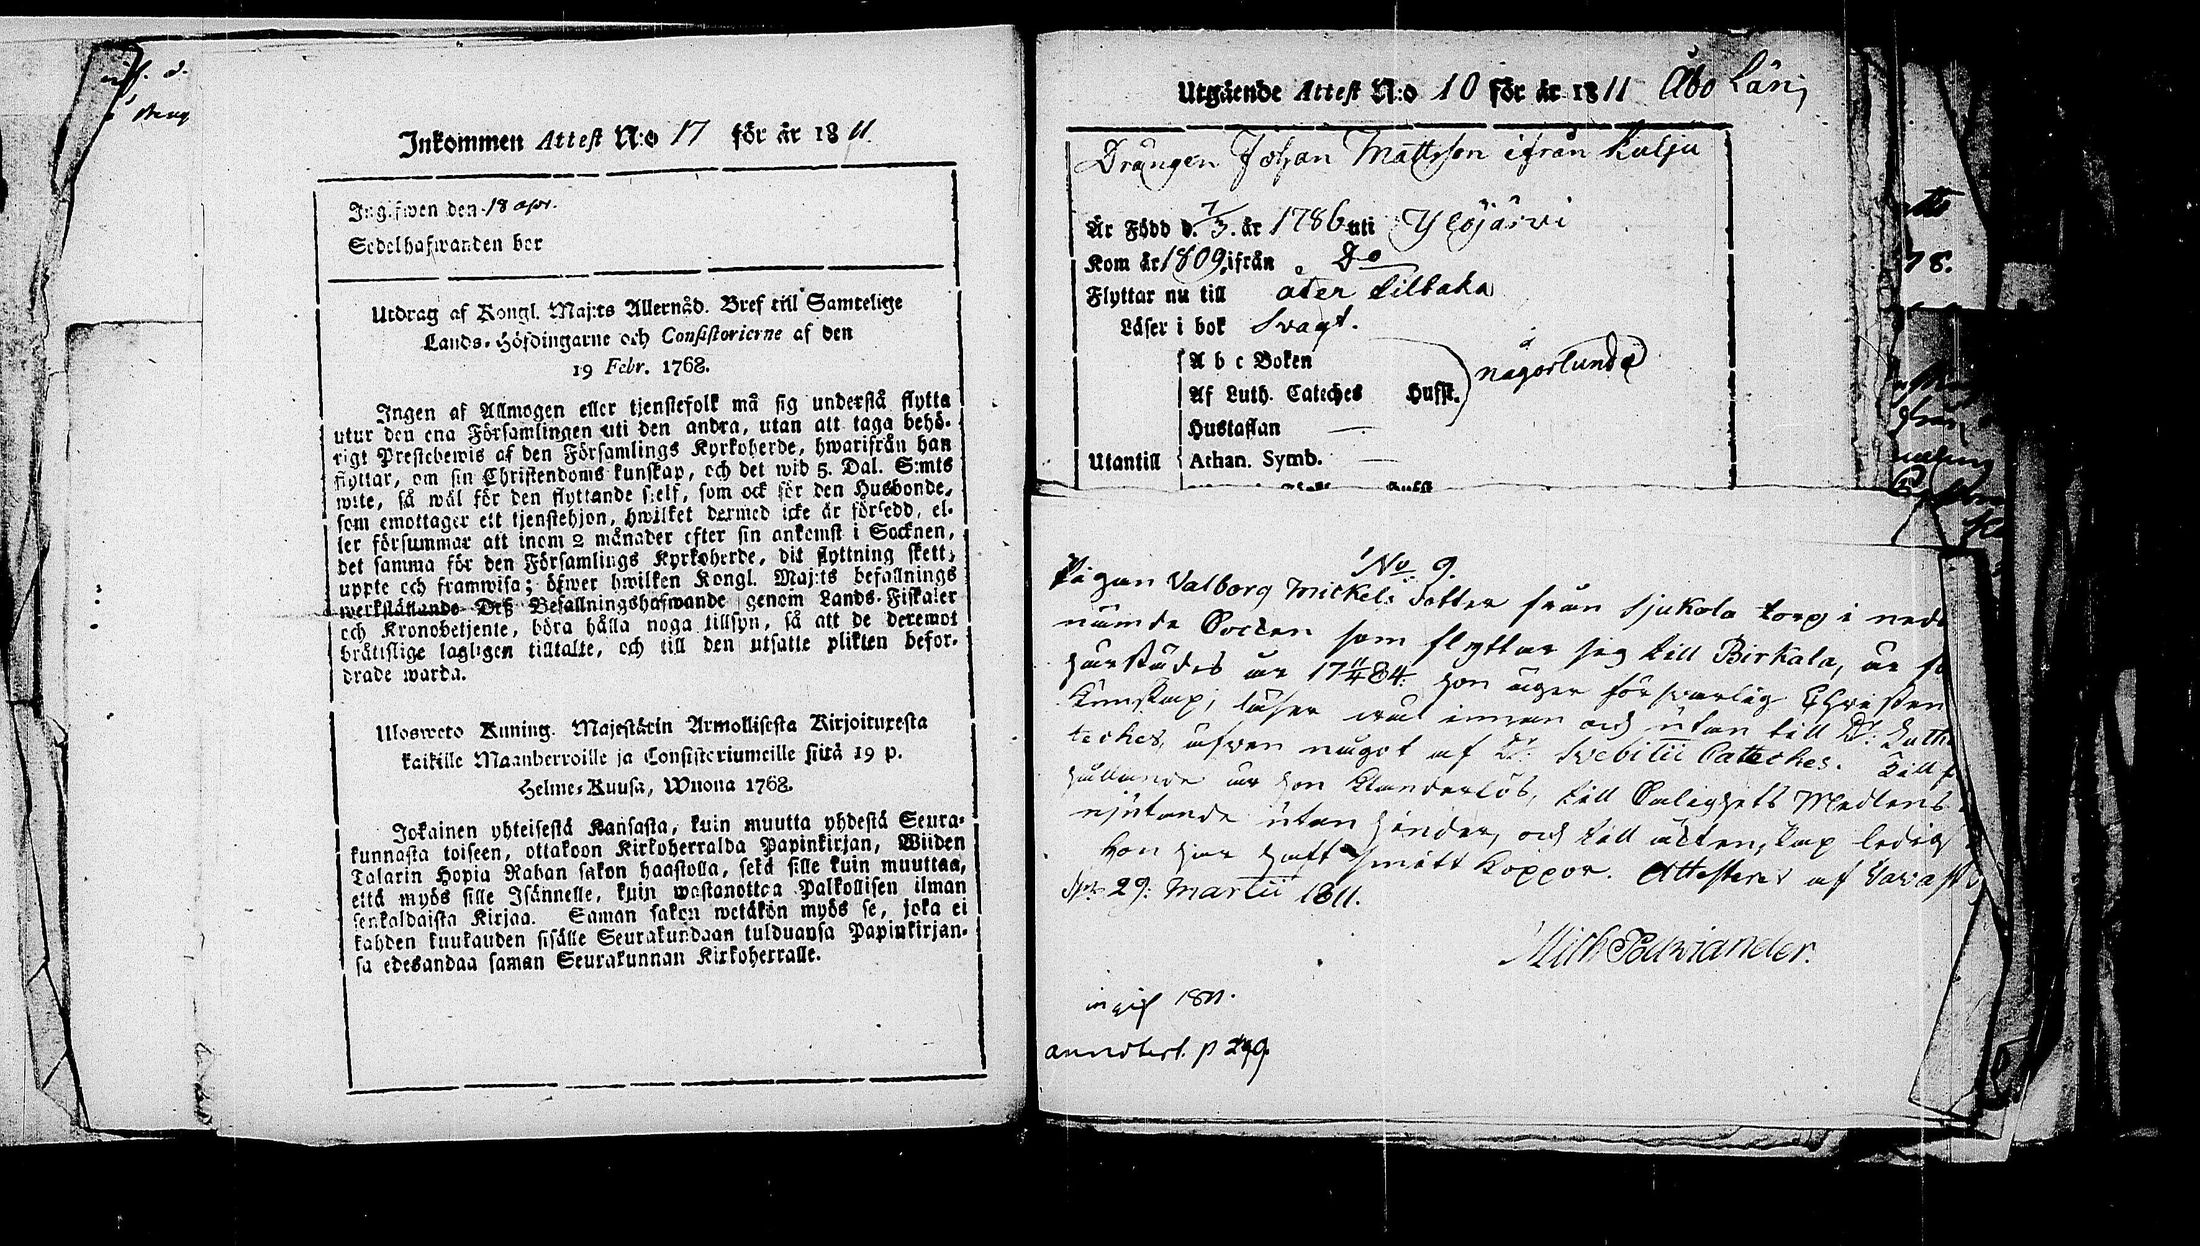 Inkommen Attest N:o 17 för år 1811.
Ingifwen den 18 apr.
Sedelhafwanden bor
Utdrag af Kongl. Maj:ts Allernåd. Bref till Samtelige
Lands-Höfdingarne och Consistorierne af den
19 Febr. 1768.
Ingen af Allmogen eller tjenstefolk må sig understå flytta
utur den ena Församlingen uti den andra, utan att taga behö-
rigt Prestebewis af den Församlings Kyrkoherde, hwarifrån han
flyttar, om sin Christendoms kunskap, och det wid 5. Dal. S:mts
wite, så wäl för den flyttande sielf, som ock för den Husbonde,
som emottager ett tjenstehjon, hwilket dermed icke är försedd, el-
ler försummar att inom 2 månader efter sin ankomst i Socknen,
det samma för den Församlings Kyrkoherde, dit flyttning skett,
uppte och framwisa; öfwer hwilken Kongl. Maj:ts befallnings
werkställande Deß Befallningshafwande genom Lands-Fiskaler
och Kronobetjente, böra hålla noga tillsyn, så att de deremot
bråtislige lagligen tilltalte, och till den utsatte plikten befor-
drade warda.
Ulosweto Kuning. Majestätin Armollisesta Kirjoituxesta
kaikille Maanherroille ja Consistoriumeille siitä 19 p.
Helme-Kuusa, Wuona 1768.
Jokainen yhteisestä Kansasta, kuin muutta yhdestä Seura-
kunnasta toiseen, ottakoon Kirkoherralda Papinkirjan, Wiiden
Talarin Hopia Rahan sakon haastolla, sekä sille kuin muuttaa,
että myös sille Isännelle, kuin wastanottaa Palkollisen ilman
senkaldaista Kirjaa. Saman sakon wetäkön myös se, joka ei
kahden kuukauden sisälle Seurakundaan tulduansa Papinkirjan-
sa edesandaa saman Seurakunnan Kirkoherralle.
Utgående Attest N:o 10 för år 1811 Åbo Län
Drängen Johan Mattsson ifrån Kulju
Är Född d. 7/3. år 1786 uti Ylöjärvi
Kom år 1809. ifrån Do
Flyttar nu till åter tilbaka
Läser i bok Svagt.
A b c Boken
någorlunda
Af Luth. Cateches Hufst.
Hustaflan —
Utantill Athan. Symb. —
No 9.
Pigan Valborg Mickels dotter från Sjukola torp i
nämde Socken som flyttar sig till Birkala, är
härstädes år 17 84. hon äger försvarlig Christen
kunskap, läser wäl innan och utan till Dr: Luth
teches, äfwen något af Dr: Svebilii Cateches. Till
hållande är hon klanderlös, till Salighets Medlens
njutande utan hinder, och till äktenskap ledig
hon har haft småkoppor. Attesterar af Tavast
29: Martii 1811.
Mich Pouwiander.
ingif 1811.
annoterl. p 299.